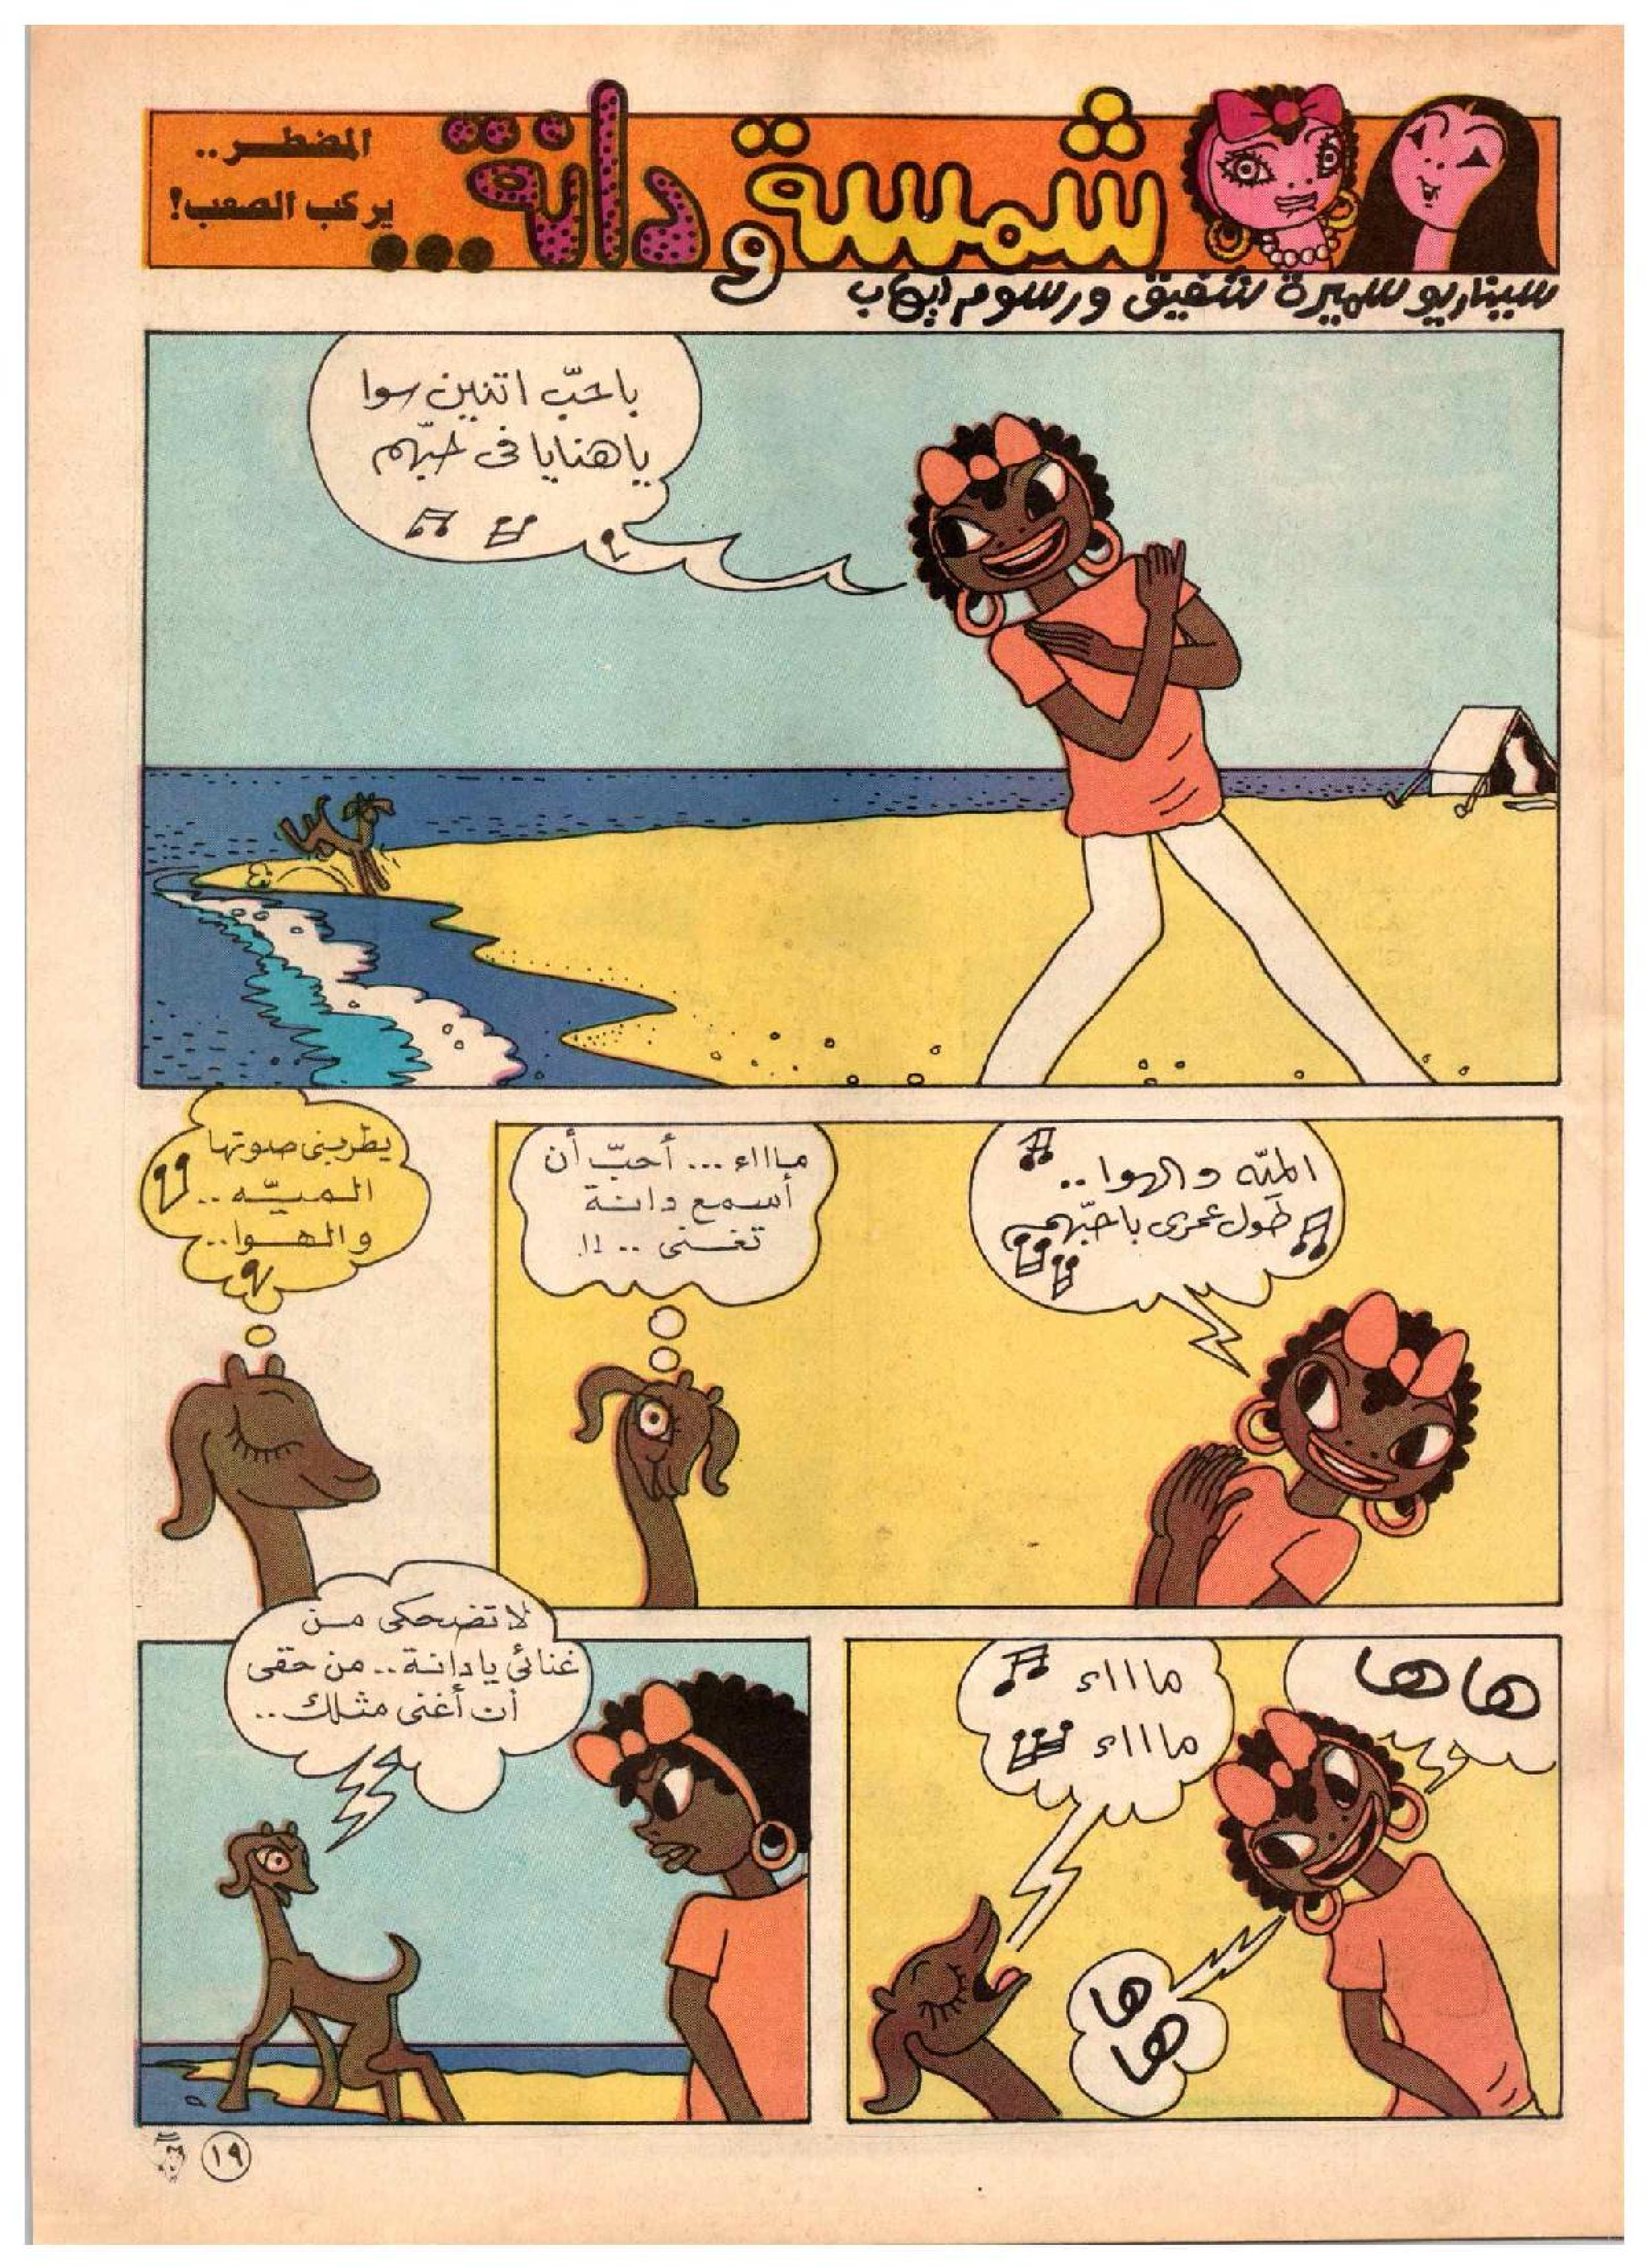 شمسة و دانة...
المضطر..
يركب الصعب!
سيناريو سميرة شفيق ورسوم إيهاب
باحبّ اتنين سوا
ياهنايا فى حبّهم
الميّه والهوا..
طول عمرى باحبّهم
مااااء... أحبّ أن
أسمع دانة
تغنى.. !!
يطربنى صوتها
الميّه..
والهوا..
هاها
ماااء
ماااء
ها
ها
لا تضحكى من
غنائى يادانة.. من حقى
أن أغنى مثلك..
١٩